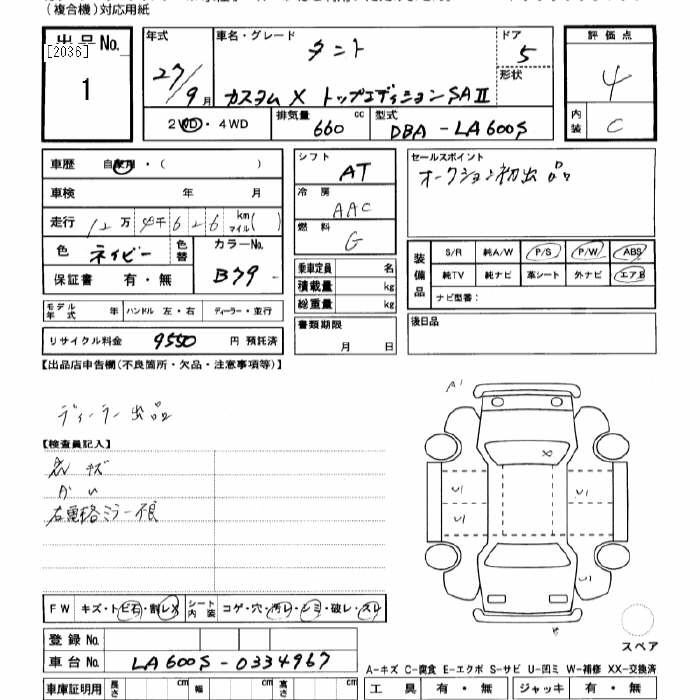 (複合機)対応用紙
出品No. 年式 車名・グレード ドア 評価点
[2036] タント 5
1 27/9月 カスタムX トップエディションSAⅡ 形状 4
2WD・4WD 排気量 660 cc 型式 DBA-LA600S 内装 C
車歴 自家用・( ) シフト AT セールスポイント
オークション初出品
車検 年 月 冷房 AAC
走行 12万4千626 km マイル( ) 燃料 G
色 ネイビー 色替 カラーNo. B79-
保証書 有・無
乗車定員 名
積載量 kg
総重量 kg
装備品 S/R 純A/W P/S P/W ABS
純TV 純ナビ 革シート 外ナビ エアB
ナビ型番:
モデル年式 年 ハンドル 左・右 ディーラー・並行
書類期限 月 日
後日品
リサイクル料金 9550 円 預託済
【出品店申告欄(不良箇所・欠品・注意事項等)】
ディーラー出品
A1
【検査員記入】
キズ
右電格ミラー不良
X
U1 U1
U1
U1
FW キズ・トビ石・割レX シート内装 コゲ・穴・汚レ・シミ・破レ・スレ
登録No.
スペア
車台No. LA600S-0334967
A-キズ C-腐食 E-エクボ S-サビ U-凹ミ W-補修 XX-交換済
車庫証明用 長さ cm 幅 cm 高さ cm 工具 有・無 ジャッキ 有・無